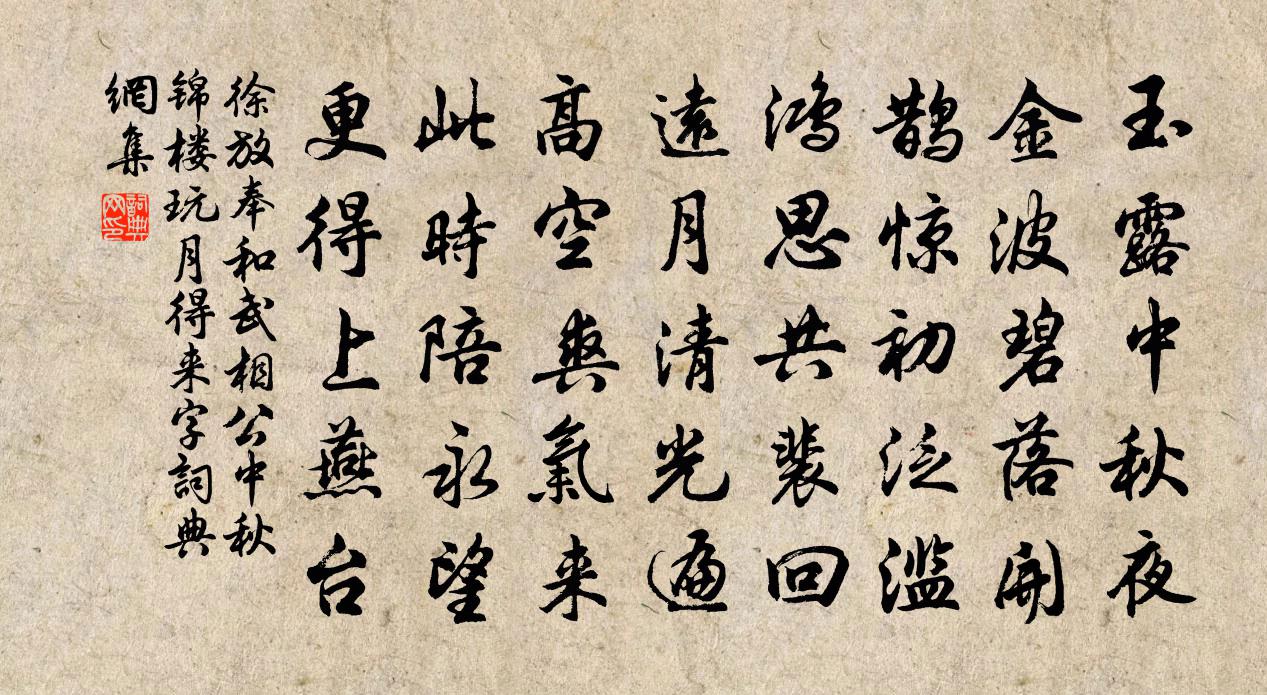 玉露中秋夜
金波碧落開
鵲惊初泛濫
鴻思共裴回
遠月清光遍
高空爽氣来
此時陪永望
更得上燕台
徐放奉和武相公中秋
锦楼玩月得来字詞典
網集
詞典网印